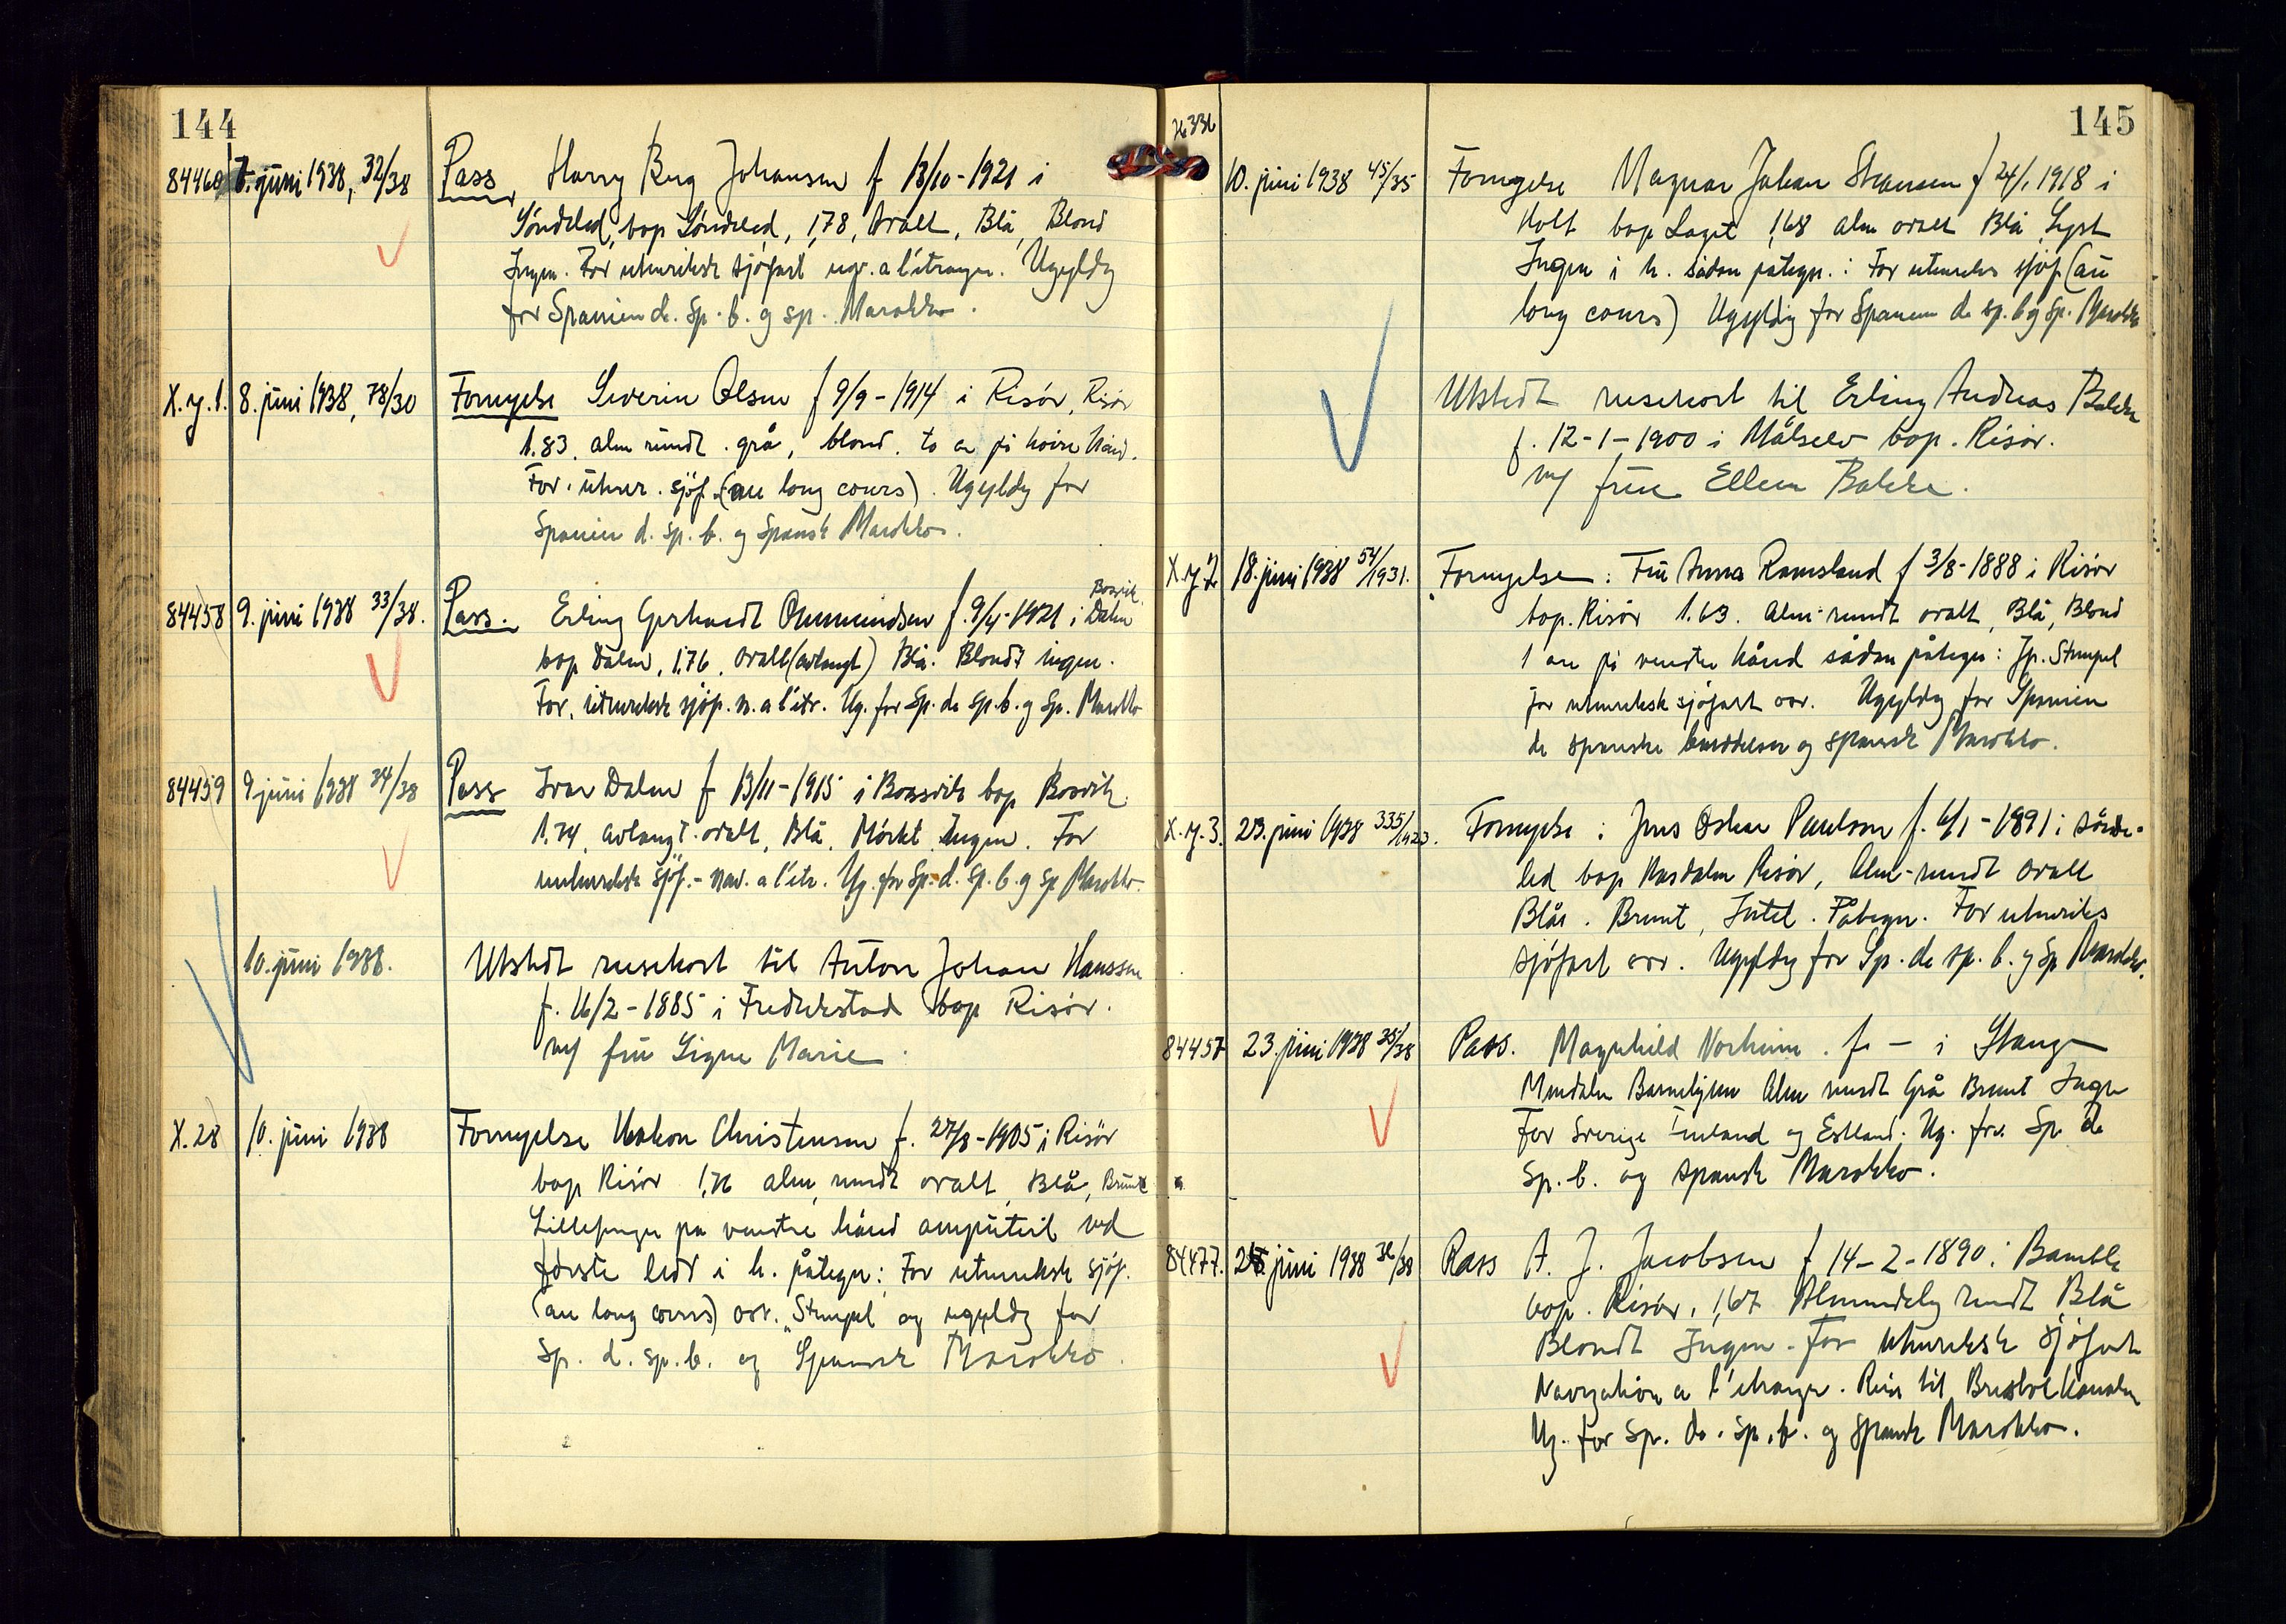 144
84460 7. juni 1938, 32/38 Pass Harry Berg Johansen f 13/10-1921 i
Søndeled, bop Søndeled, 1,78, Ovalt, Blå, Blond
Ingen. For utenriksk sjøfart nav. a l'étranger. Ugyldig
for Spanien d. sp. b. og sp. Marokko.
X.y.1. 8. juni 1938, 78/30 Fornyelse Severin Olsen f 9/9-1914 i Risør, Risør
1.83. alm rundt. grå, blond. to arr på høire hånd.
For utenr. sjøf. (au long cours). Ugyldig for
Spanien d. sp. b. og Spansk Marokko.
84458 9. juni 1938 33/38. Pass. Erling Gerhardt Ommundsen f. 9/4-1921 i Dalen
Bosvik.
bop Dalen, 1,76, ovalt (avlangt) Blå. Blondt ingen.
For. utenriksk sjøf. n. a l'étr. Ug. for Sp. de sp. b. og Sp. Marokko
84459 9 juni 1938 34/38 Pass Ivar Dalen f 13/11-1915 i Bossvik bop Bosvik.
1.74, avlangt. ovalt, Blå, Mørkt Ingen. For
utenriksk sjøf. - nav. a l'étr. Ug. for Sp. d. sp. b. og sp Marokko.
10. juni 1938. Utstedt reisekort til Anton Johan Hanssen
f. 16/2-1885 i Fredrikstad bop Risør.
m/ fru Signe Marie.
X.28 10. juni 1938 Fornyelse Håkon Christensen f. 27/8-1905 i Risør
bop Risør 1,76 alm, rundt ovalt, Blå, Brunt
Lillefinger på venstre hånd amputert ved
første ledd i h. påtegn: For utenriksk sjøf.
(au long cours) ovr. "Stempel og ugyldig for
Sp. d. sp. b. og Spansk Marokko.
145
10. juni 1938 45/35 Fornyelse Magnar Johan Steansen f 24/1 1918 i
Holt bop Laget 1,68 alm ovalt Blå Lyst
Ingen i h. sådan påtegn.: For utenriks sjøf (au
long cours) Ugyldig for Spanien de sp. b og Sp. Marokko
Utstedt reisekort til Erling Andreas Bakke
f. 12-1-1900 i Målselv bop. Risør.
m/ frue Ellen Bakke.
X.y.2 18. juni 1938 54/1931. Fornyelse: Fru Anna Ramsland f 3/8-1888 i Risør
bop. Risør 1.63. Alm. rundt ovalt, Blå, Blond
1 arr på venstre hånd sådan påtegn: Jp. Stempel
for utenriksk sjøfart ovr. Ugyldig for Spanien
de spanske besiddelser og spansk Marokko.
X.y.3. 23. juni 1938 335/1923. Fornyelse: Jens Oskar Paulsen f. 6/1-1891 i Sønde-
led bop Hasdalen Risør, Alm-rundt ovalt
Blåe. Brunt, Intet. Påtegn. For utenriks
sjøfart ovr. Ugyldig for Sp. de sp. b. og Sp Marokko.
84457 23. juni 1938 35/38 Pass. Magnhild Norheim. f. - i Stange
Barnehjem Alm rundt Grå Brunt Ingen
For Sverige Finland og Estland. Ug. for Sp de
sp. b. og spansk Marokko.
84477. 25. juni 1938 36/38 Pass A. J. Jacobsen f 14-2-1890 i Bamble
bop. Risør, 1,67 Almindelig rundt Blå
Blondt Ingen. For utenriksk Sjøfart
Navigation a l'étranger. Reise til Bristol Kanalen
Ug. for Sp. de. sp. b. og spansk Marokko.